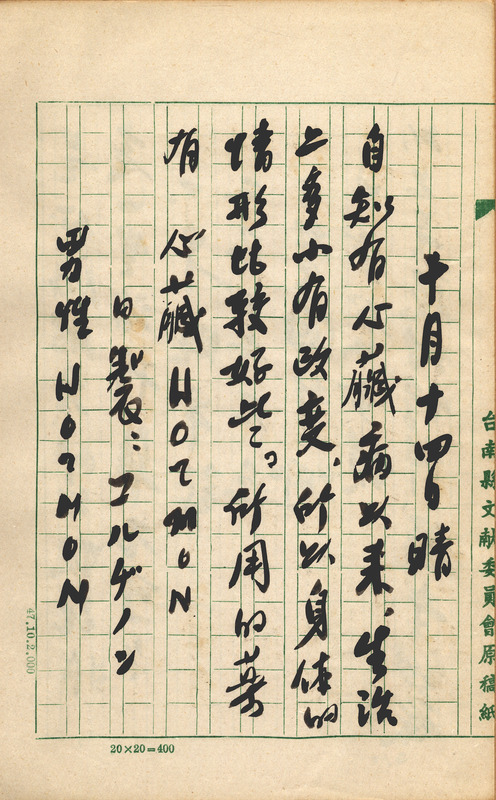 十月十四日 晴
自知有心藏病以来、生活
上多小有改変、所以身体的
情形比較好些。所用的薬
有 心藏HOLMON
日製:エルゲノン
男性HOLMON
台南縣文献委員會原稿紙
20×20=400
47.10.2,000